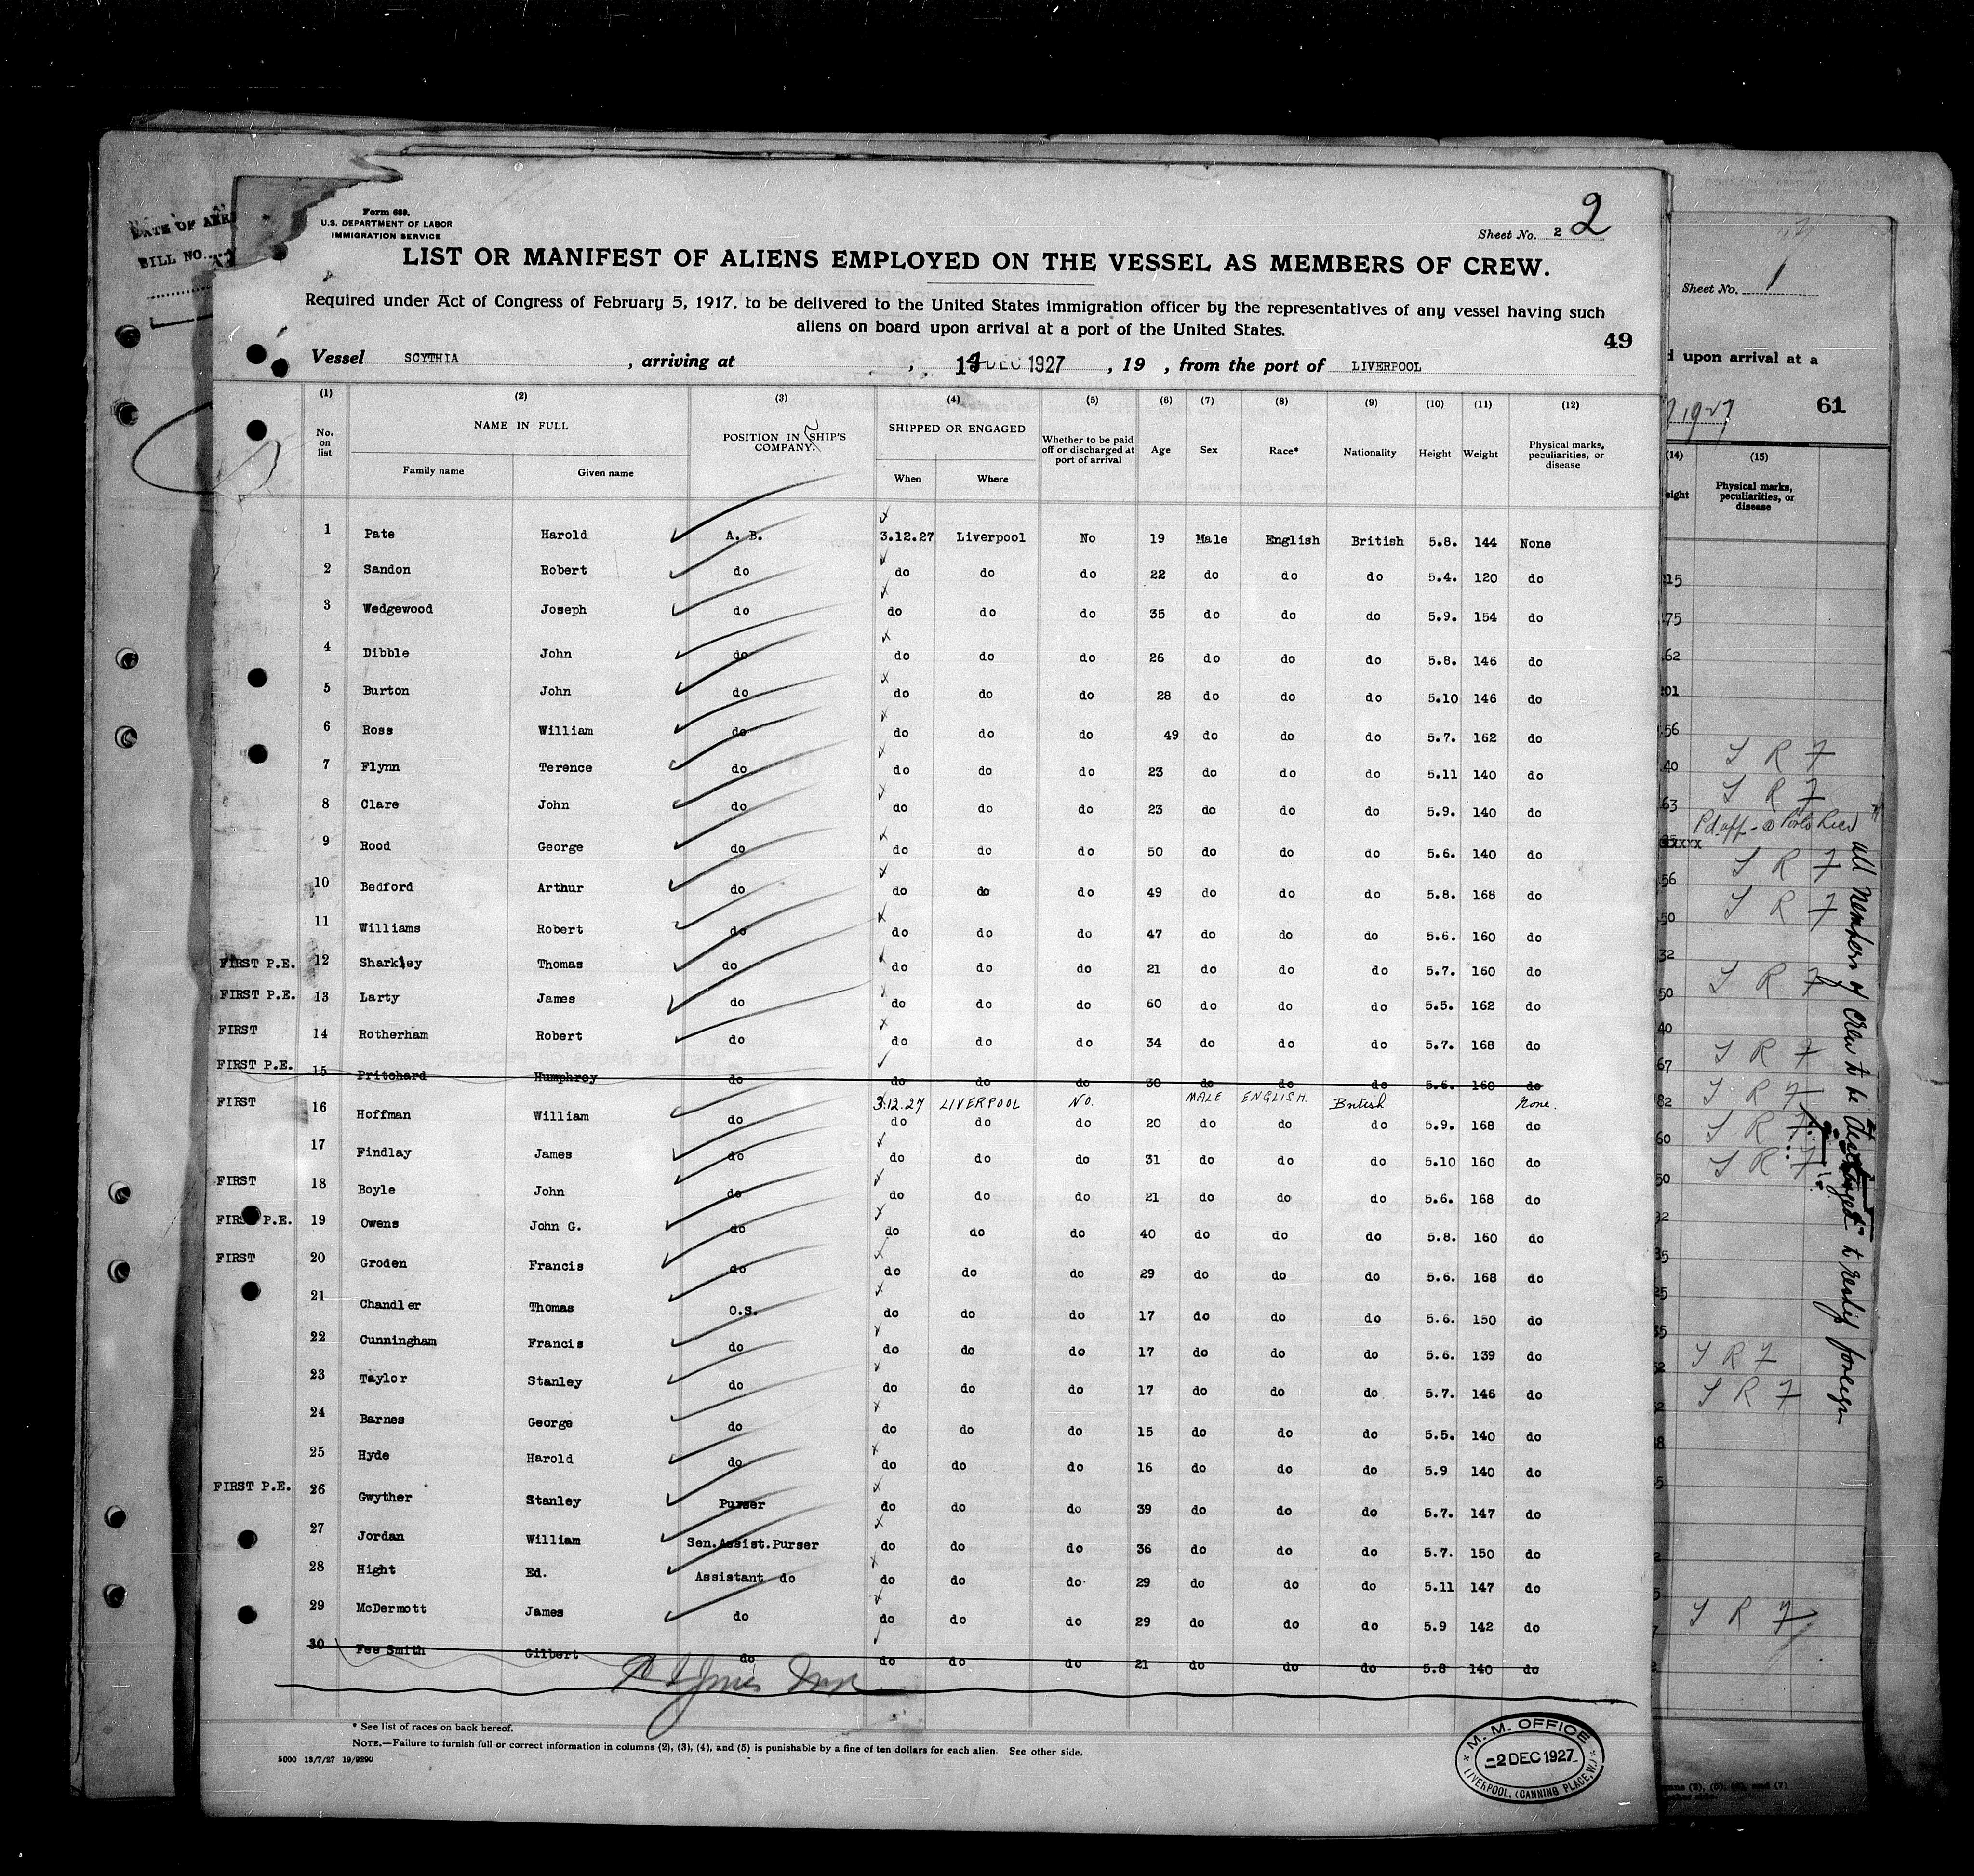 DATE OF
BILL NO.
Form 689.
U.S. DEPARTMENT OF LABOR
IMMIGRATION SERVICE
Sheet No. 2 2
LIST OR MANIFEST OF ALIENS EMPLOYED ON THE VESSEL AS MEMBERS OF CREW.
Required under Act of Congress of February 5, 1917, to be delivered to the United States immigration officer by the representatives of any vessel having such
aliens on board upon arrival at a port of the United States.
49
Vessel SCYTHIA , arriving at , DEC 1927 , 19 , from the port of LIVERPOOL
(1) (2) (3) (4) (5) (6) (7) (8) (9) (10) (11) (12)
No. on list NAME IN FULL Family name Given name POSITION IN SHIP'S COMPANY. SHIPPED OR ENGAGED When Where Whether to be paid off or discharged at port of arrival Age Sex Race* Nationality Height Weight Physical marks, peculiarities, or disease
1 Pate Harold A. B. 3.12.27 Liverpool No 19 Male English British 5.8. 144 None
2 Sandon Robert do do do do 22 do do do 5.4. 120 do
3 Wedgewood Joseph do do do do 35 do do do 5.9. 154 do
4 Dibble John do do do do 26 do do do 5.8. 146 do
5 Burton John do do do do 28 do do do 5.10 146 do
6 Ross William do do do do 49 do do do 5.7. 162 do
7 Flynn Terence do do do do 23 do do do 5.11 140 do
8 Clare John do do do do 23 do do do 5.9. 140 do
9 Rood George do do do do 50 do do do 5.6. 140 do
10 Bedford Arthur do do do do 49 do do do 5.8. 168 do
11 Williams Robert do do do do 47 do do do 5.6. 160 do
FIRST P.E. 12 Sharkley Thomas do do do do 21 do do do 5.7. 160 do
FIRST P.E. 13 Larty James do do do do 60 do do do 5.5. 162 do
FIRST 14 Rotherham Robert do do do do 34 do do do 5.7. 168 do
FIRST P.E. 15 Pritchard Humphrey do do do do 30 do do do 5.6. 160 do
3.12.27 LIVERPOOL NO. MALE ENGLISH. British None.
FIRST 16 Hoffman William do do do do 20 do do do 5.9. 168 do
17 Findlay James do do do do 31 do do do 5.10 160 do
FIRST 18 Boyle John do do do do 21 do do do 5.6. 168 do
FIRST P.E. 19 Owens John G. do do do do 40 do do do 5.8. 160 do
FIRST 20 Groden Francis do do do do 29 do do do 5.6. 168 do
21 Chandler Thomas O.S. do do do 17 do do do 5.6. 150 do
22 Cunningham Francis do do do do 17 do do do 5.6. 139 do
23 Taylor Stanley do do do do 17 do do do 5.7. 146 do
24 Barnes George do do do do 15 do do do 5.5. 140 do
25 Hyde Harold do do do do 16 do do do 5.9 140 do
FIRST P.E. 26 Gwyther Stanley Purser do do do 39 do do do 5.7. 147 do
27 Jordan William Sen.Assist.Purser do do do 36 do do do 5.7. 150 do
28 Hight Ed. Assistant do do do do 29 do do do 5.11 147 do
29 McDermott James do do do do 29 do do do 5.9 142 do
30 Fee Smith Gilbert do do do do 21 do do do 5.8 140 do
* See list of races on back hereof.
NOTE.—Failure to furnish full or correct information in columns (2), (3), (4), and (5) is punishable by a fine of ten dollars for each alien. See other side.
5000 13/7/27 19/9290
M. M. OFFICE
2 DEC 1927
LIVERPOOL, (CANNING PLACE, W.)
Sheet No. 1
upon arrival at a
1927 61
(14) (15)
Physical marks, peculiarities, or disease
S R F
S R F
Pd off - @ Porto Rico
S R F
S R F
S R F
S R F
S R F
S R F
S R F
S R F
S R F
S R F
all members of crew to be to reship foreign